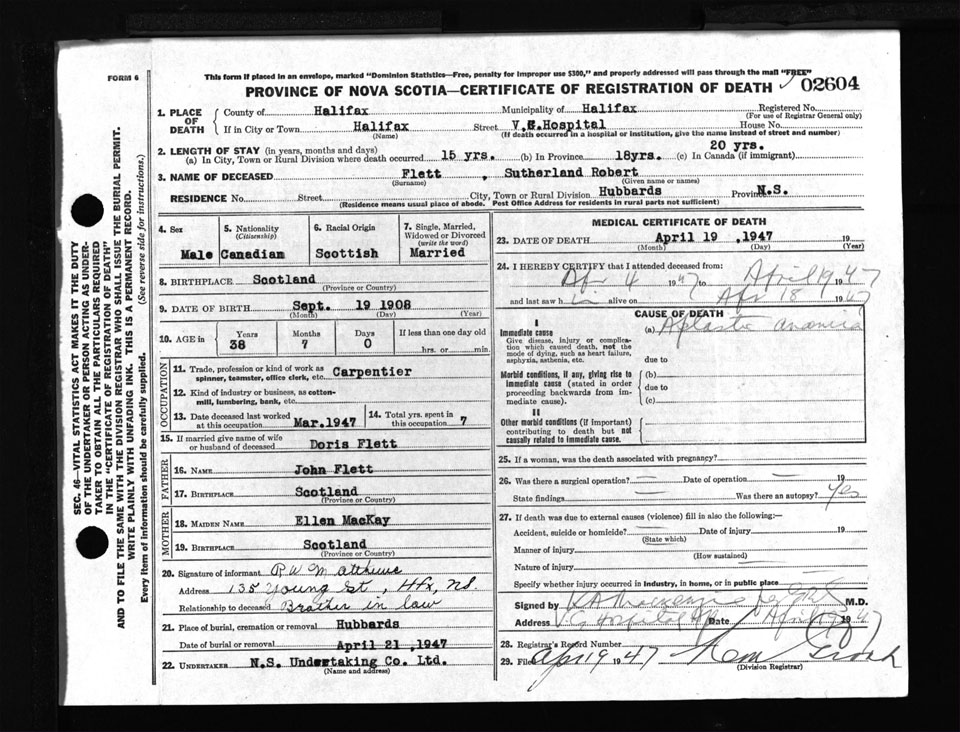 FORM 6
This form if placed in an envelope, marked "Dominion Statistics—Free, penalty for improper use $300," and properly addressed will pass through the mail "FREE"
PROVINCE OF NOVA SCOTIA—CERTIFICATE OF REGISTRATION OF DEATH
02604
1. PLACE OF DEATH
County of Halifax Municipality of Halifax Registered No.
(For use of Registrar General only)
If in City or Town Halifax Street V.G.Hospital House No.
(Name) (If death occurred in a hospital or institution, give the name instead of street and number)
2. LENGTH OF STAY (in years, months and days)
(a) In City, Town or Rural Division where death occurred 15 yrs. (b) In Province 18yrs. (c) In Canada (if immigrant) 20 yrs.
3. NAME OF DECEASED Flett , Sutherland Robert
(Surname) (Given name or names)
RESIDENCE No. Street City, Town or Rural Division Hubbards Province N.S.
(Residence means usual place of abode. Post Office Address for residents in rural parts not sufficient)
4. Sex
Male
5. Nationality
(Citizenship)
Canadian
6. Racial Origin
Scottish
7. Single, Married, Widowed or Divorced
(write the word)
Married
8. BIRTHPLACE Scotland
(Province or Country)
9. DATE OF BIRTH Sept. 19 1908
(Month) (Day) (Year)
10. AGE in
Years
38
Months
7
Days
0
If less than one day old
hrs. or min.
OCCUPATION
11. Trade, profession or kind of work as
spinner, teamster, office clerk, etc. Carpentier
12. Kind of industry or business, as cotton-
mill, lumbering, bank, etc.
13. Date deceased last worked
at this occupation Mar.1947
14. Total yrs. spent in
this occupation 7
15. If married give name of wife
or husband of deceased Doris Flett
FATHER
16. NAME John Flett
17. BIRTHPLACE Scotland
(Province or Country)
MOTHER
18. MAIDEN NAME Ellen MacKay
19. BIRTHPLACE Scotland
(Province or Country)
20. Signature of informant R W Matthews
Address 135 Young St, Hfx, NS.
Relationship to deceased Brother in law
21. Place of burial, cremation or removal Hubbards
Date of burial or removal April 21 ,1947
22. UNDERTAKER N.S. Undertaking Co. Ltd.
(Name and address)
MEDICAL CERTIFICATE OF DEATH
23. DATE OF DEATH April 19 ,1947 19
(Month) (Day) (Year)
24. I HEREBY CERTIFY that I attended deceased from:
Apr 4 1947 to April 19 1947
and last saw him alive on Apr 18 1947
CAUSE OF DEATH
I
Immediate cause
Give disease, injury or complica-
tion which caused death, not the
mode of dying, such as heart failure,
asphyxia, asthenia, etc.
(a) Aplastic anaemia
due to
Morbid conditions, if any, giving rise to
immediate cause (stated in order
proceeding backwards from im-
mediate cause).
(b)
due to
(c)
II
Other morbid conditions (if important)
contributing to death but not
causally related to immediate cause.
25. If a woman, was the death associated with pregnancy?
26. Was there a surgical operation? — Date of operation 19
State findings — Was there an autopsy? Yes
27. If death was due to external causes (violence) fill in also the following:—
Accident, suicide or homicide? Date of injury 19
(State which)
Manner of injury
(How sustained)
Nature of injury
Specify whether injury occurred in industry, in home, or in public place
Signed by M.D.
Address V.G. Hospital Date April 1947
28. Registrar's Record Number
29. Filed Apr 19 1947
(Division Registrar)
SEC. 46—VITAL STATISTICS ACT MAKES IT THE DUTY
OF THE UNDERTAKER OR PERSON ACTING AS UNDER-
TAKER TO OBTAIN ALL THE PARTICULARS REQUIRED
IN THE "CERTIFICATE OF REGISTRATION OF DEATH"
AND TO FILE THE SAME WITH THE DIVISION REGISTRAR WHO SHALL ISSUE THE BURIAL PERMIT.
WRITE PLAINLY WITH UNFADING INK. THIS IS A PERMANENT RECORD.
Every item of information should be carefully supplied. (See reverse side for instructions.)